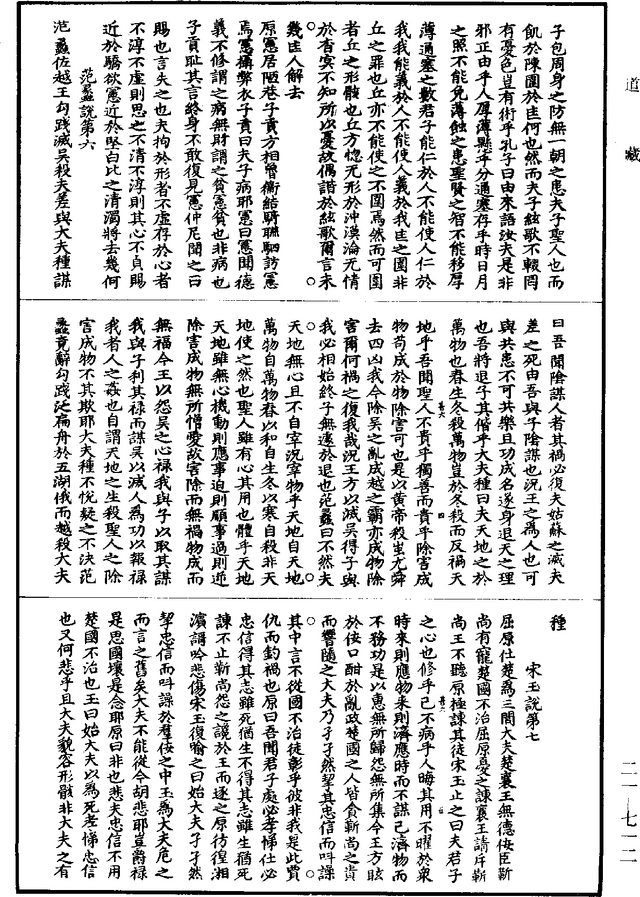 道藏
子包周身之防無一朝之患夫子聖人也而
飢於陳圍於匡何也然而夫子絃歌不輟罔
有憂色豈有術乎孔子曰由來語汝夫是非
邪正由乎人厚薄懸乎分通塞存乎時日月
之照不能免薄蝕之患聖賢之智不能移厚
薄通塞之數君子能仁於人不能使人仁於
我我能義於人不能使人義於我匡之圍非
丘之罪也丘亦不能使之不圍焉然而可圍
者丘之形骸也丘方惚无形於沖漠淪无情
於杳冥不知所以憂故偶諧於絃歌爾言未
幾匡人解去
原憲居陋巷子貢方相魯衛結駟聯駟訪憲
焉憲攝弊衣子貢曰夫子病耶憲曰憲聞德
義不修謂之病無財謂之貧憲貧也非病也
子貢耻其言終身不敢復見憲仲尼聞之曰
賜也言失之也夫拘於形者不虛存於心者
不淳不虛則思之不清不淳則其心不貞賜
近於驕欲憲近於堅白比之清濁將去幾何
范蠡說第六
范蠡佐越王勾踐滅吳殺夫差與大夫種謀
曰吾聞陰謀人者其禍必復夫姑蘇之滅夫
差之死由吾與子陰謀也況王之為人也可
與共患不可共樂且功成名遂身退天之理
也吾將退子其偕乎大夫種曰夫天地之於
萬物也春生冬殺萬物豈於冬殺而反禍天
地乎吾聞聖人不貴乎獨善而貴乎除害成
物苟成於物除害可也是以黃帝殺蚩尤舜
去四凶我今除吳之亂成越之霸亦成物除
害爾何禍之復我哉況王方以滅吳得子與
我必相始終子無遽於退也范蠡曰不然夫
天地無心且不自宰況宰物乎天地自天地
萬物自萬物春以和自生冬以寒自殺非天
地使之然也聖人雖有心其用也體乎天地
天地雖無心機動則應事迫則順事過則逆
除害成物無所憎愛故害除而無禍物成而
無福今王以怨吳之心祿我與子以取其謀
我與子利其祿而謀吳以滅人為功以報祿
我者人之姦也自謂天地之生殺聖人之除
害成物不其欺耶大夫種不悅疑之不決范
蠡竟辭勾踐泛扁舟於五湖俄而越殺大夫
種
宋玉說第七
屈原仕楚為三閭大夫楚襄王無德佞臣靳
尚有寵楚國不治屈原憂之諫襄王請斥靳
尚王不聽原極諫其徒宋玉止之曰夫君子
之心也修乎己不病乎人晦其用不曜於衆
時來則應物來則濟應時而不謀己濟物而
不務功是以惠無所歸怨無所集今王方眩
於佞口酣於亂政楚國之人皆貪靳尚之貴
而響隨之大夫乃孑孑然挈其忠信而叫譟
其中言不從國不治徒彰乎彼非我是此賈
仇而釣禍也原曰吾聞君子處必孝悌仕必
忠信得其志雖死猶生不得其志雖生猶死
諫不止靳尚怨之讒於王而逐之原彷徨湘
濱謳吟悲傷宋玉復喻之曰始大夫孑孑然
挈忠信而叫譟於羣佞之中玉為大夫危之
而言之舊矣大夫不能從今胡悲耶豈爵祿
是思國壞是念耶原曰非也悲夫忠信不用
楚國不治也玉曰始大夫以為死孝悌忠信
也又何悲乎且大夫貌容形骸非大夫之有
二一—七一二